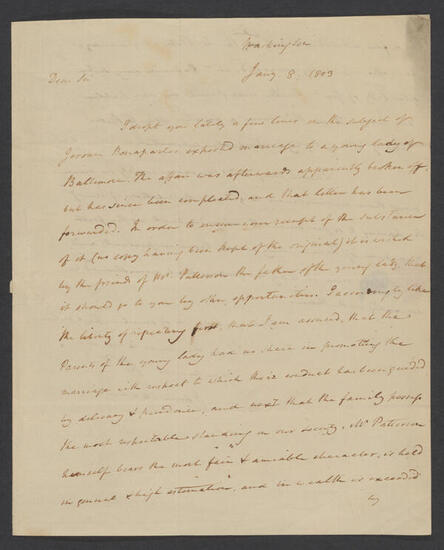 Washington
Jany 8. 1803
Dear Sir
I dropt you lately a few lines on the subject of
Jerome Bonapartes expected marriage to a young lady of
Baltimore. The affair was afterwards apparently broken off,
but has since been compleated, and that letter has been
forwarded. In order to ensure your receipt of the substance
of it (no copy having been kept of the original) it is wished
by the friends of Mr. Patterson the father of the young lady, that
it should go to you by other opportunities. I accordingly take
the liberty of repeating first, that I am assured, that the
Parents of the young lady had no share in promoting the
marriage with respect to which their conduct has been guided
by delicacy & prudence, and next that the family possess
the most respectable standing in our society. Mr Patterson
himself bears the most fair & amiable character, is held
in general & high estimation, and in wealth is exceeded
by